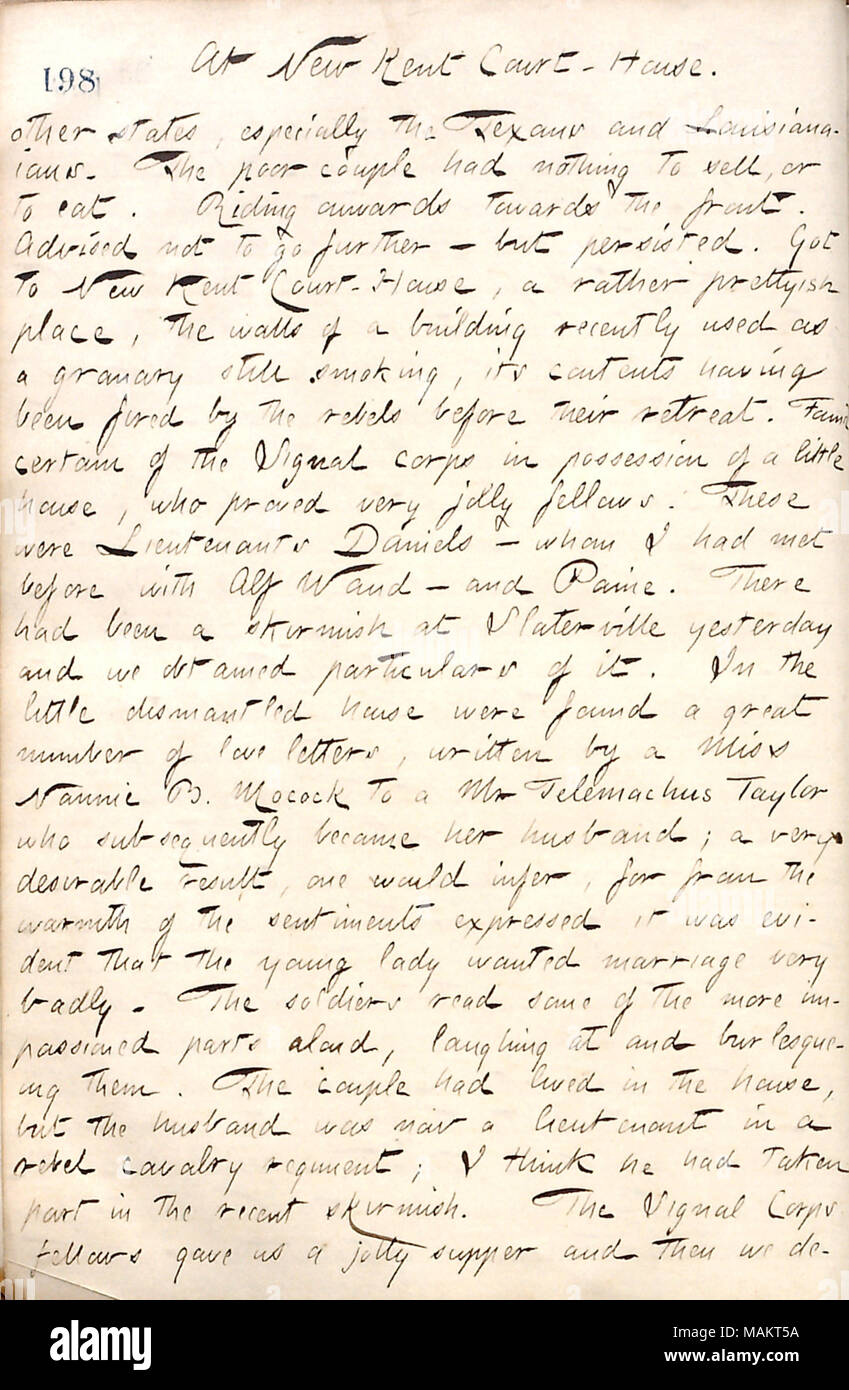 At New Kent Court-House.
198
other states, especially the Texans and Louisiana-
ians. The poor couple had nothing to sell, or
to eat. Riding onwards towards the front.
Advised not to go further — but persisted. Got
to New Kent Court-House, a rather prettyish
place, the walls of a building recently used as
a granary still smoking, its contents having
been fired by the rebels before their retreat. Found
certain of the Signal corps in possession of a little
house, who proved very jolly fellows. These
were Lieutenants Daniels — whom I had met
before with Alf Waud — and Paine. There
had been a skirmish at Slaterville yesterday
and we obtained particulars of it. In the
little dismantled house were found a great
number of love letters, written by a Miss
Nannie B. Mocock to a Mr Telemachus Taylor
who subsequently became her husband; a very
desirable result, one would infer, for from the
warmth of the sentiments expressed it was evi-
dent that the young lady wanted marriage very
badly. The soldiers read some of the more im-
passioned parts aloud, laughing at and burlesque-
ing them. The couple had lived in the house,
but the husband was now a lieutenant in a
rebel cavalry regiment; I think he had taken
part in the recent skirmish. The Signal Corps
fellows gave us a jolly supper and then we de-
alamy
Image ID: MAKT5A
www.alamy.com